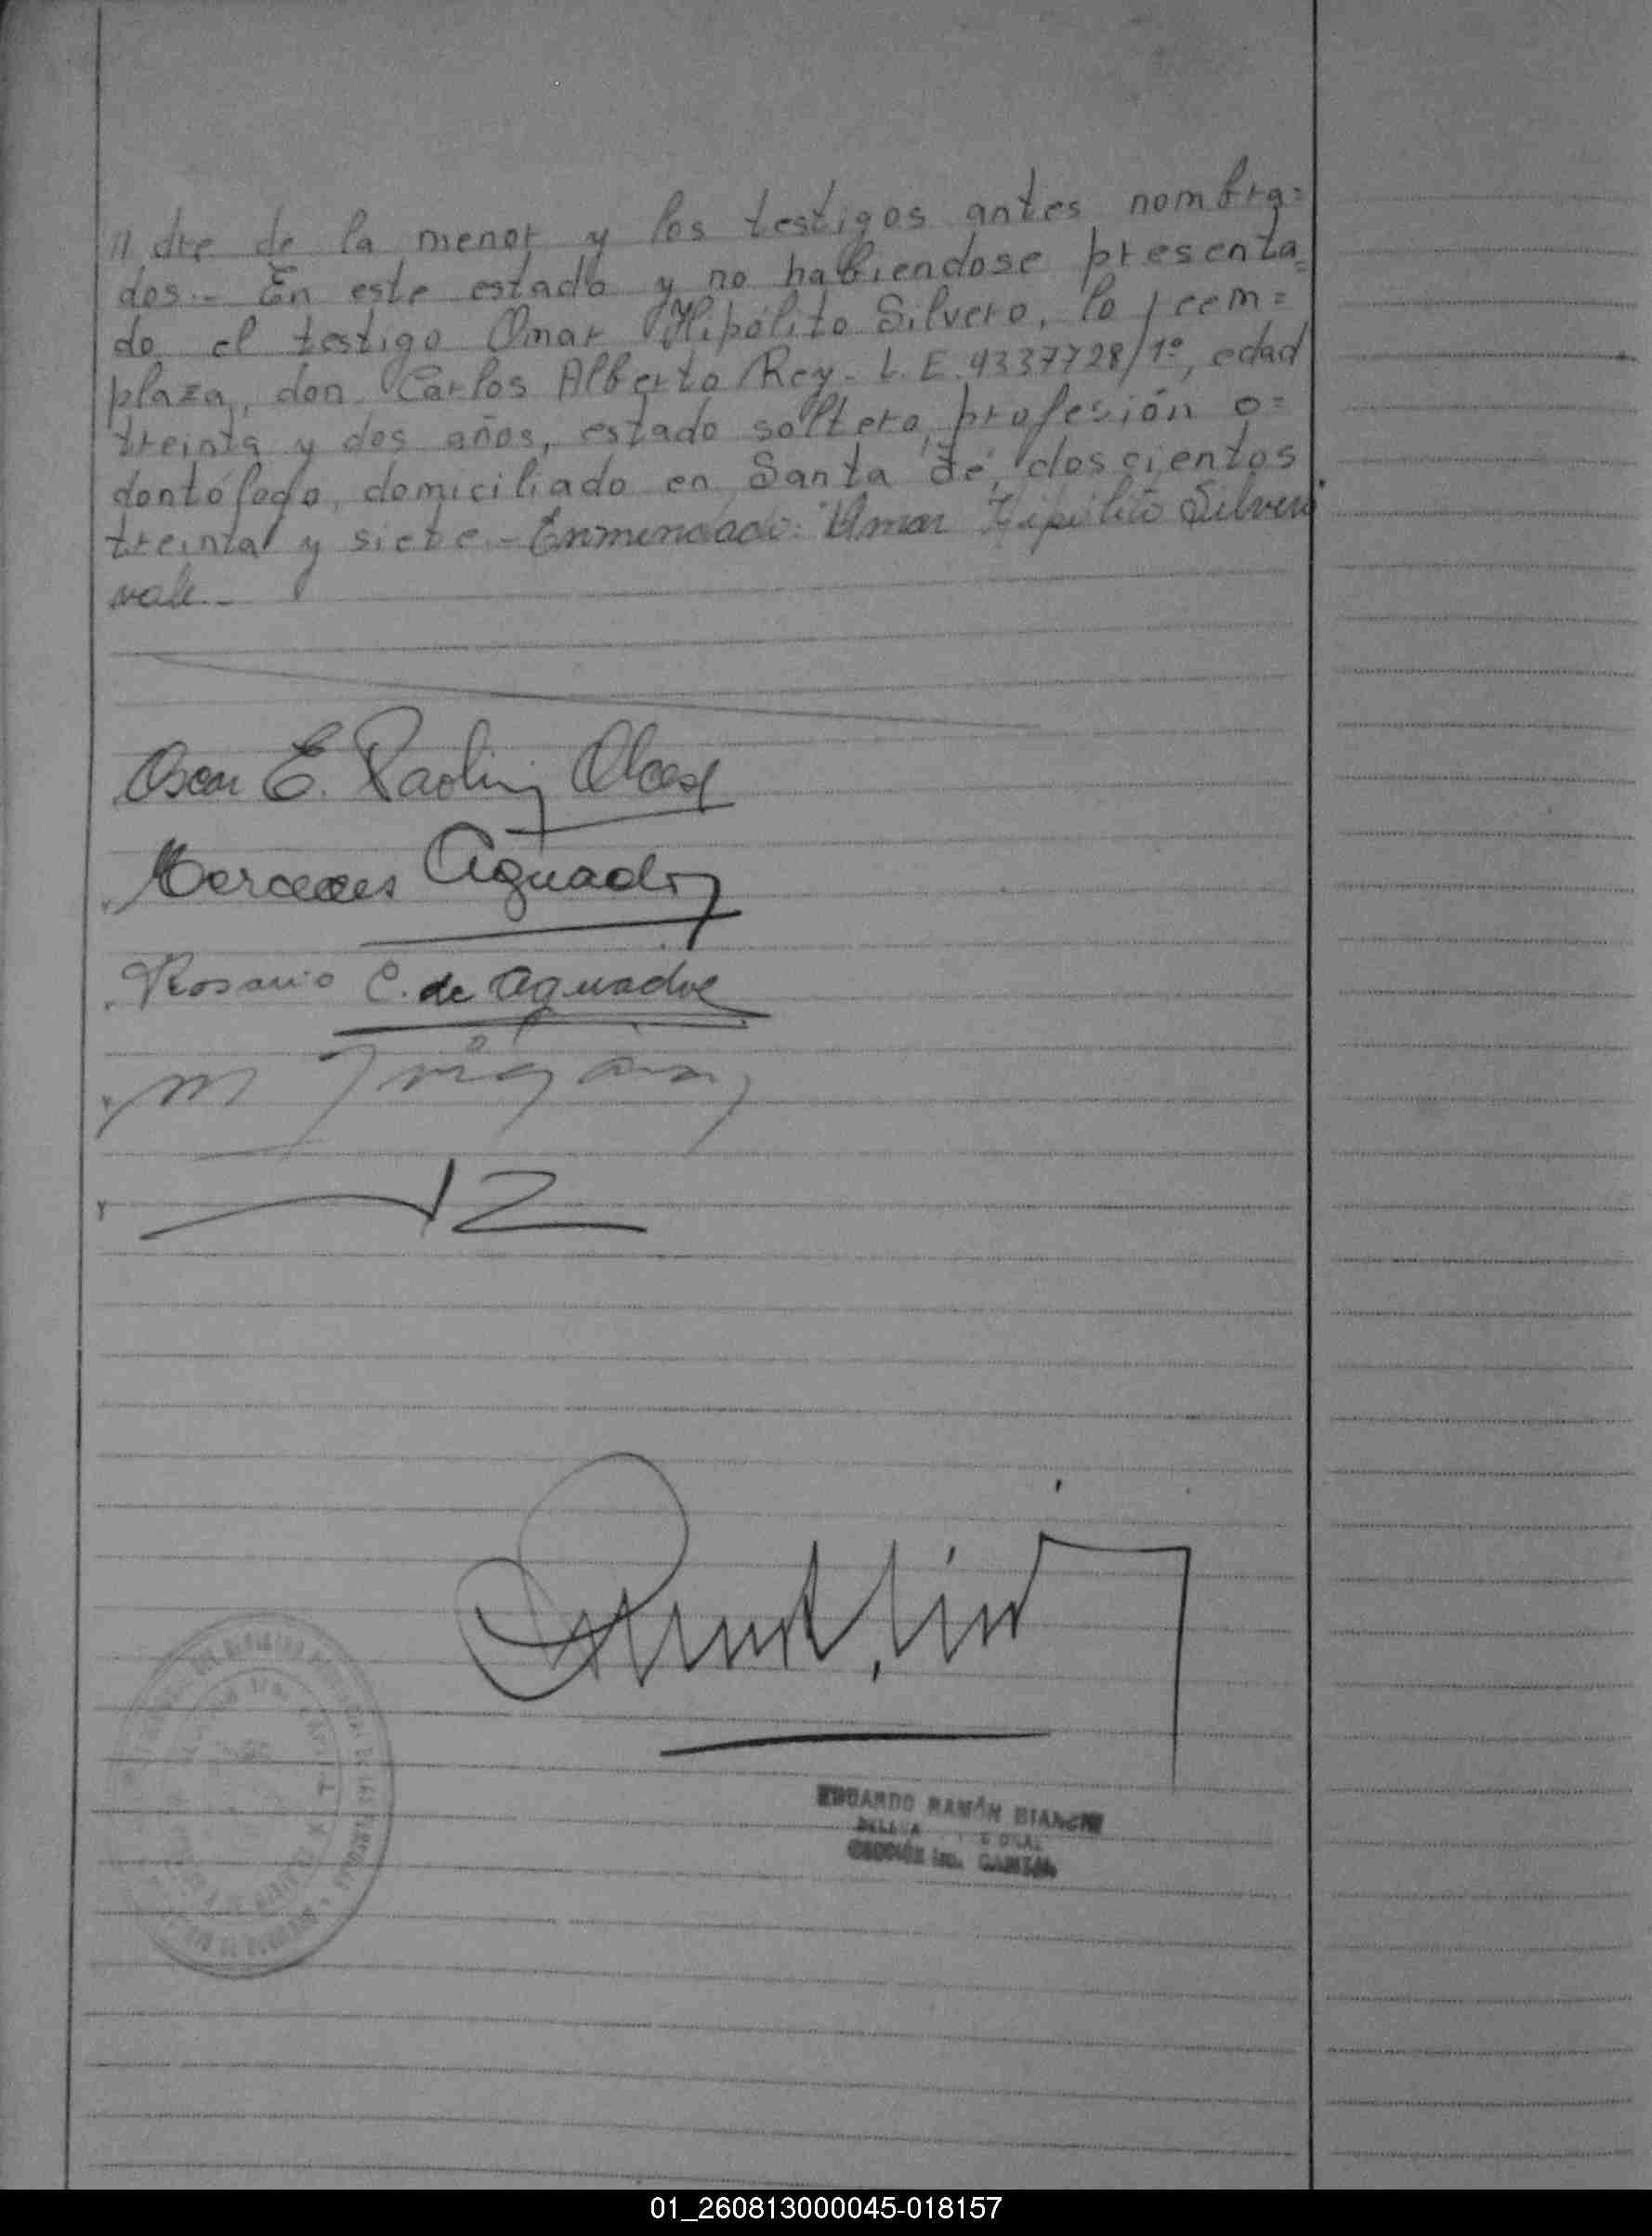 // dre de la menor y los testigos antes nombra=
dos.- En este estado y no habiendose presenta=
do el testigo Omar Hipólito Silvero, lo reem=
plaza, don Carlos Alberto Rey- L.E. 4337728/1º, edad
treinta y dos años, estado soltero, profesión o=
dontólogo, domiciliado en Santa Fé, doscientos
treinta y siete.- Enmendado: Omar Hipólito Silvero
vale.-
Oscar E. Paolini
Mercedes Aguado
Rosario C. de Aguado
EDUARDO RAMÓN BIANCHI
SECCIÓN 1ra. CAPITAL
01_260813000045-018157